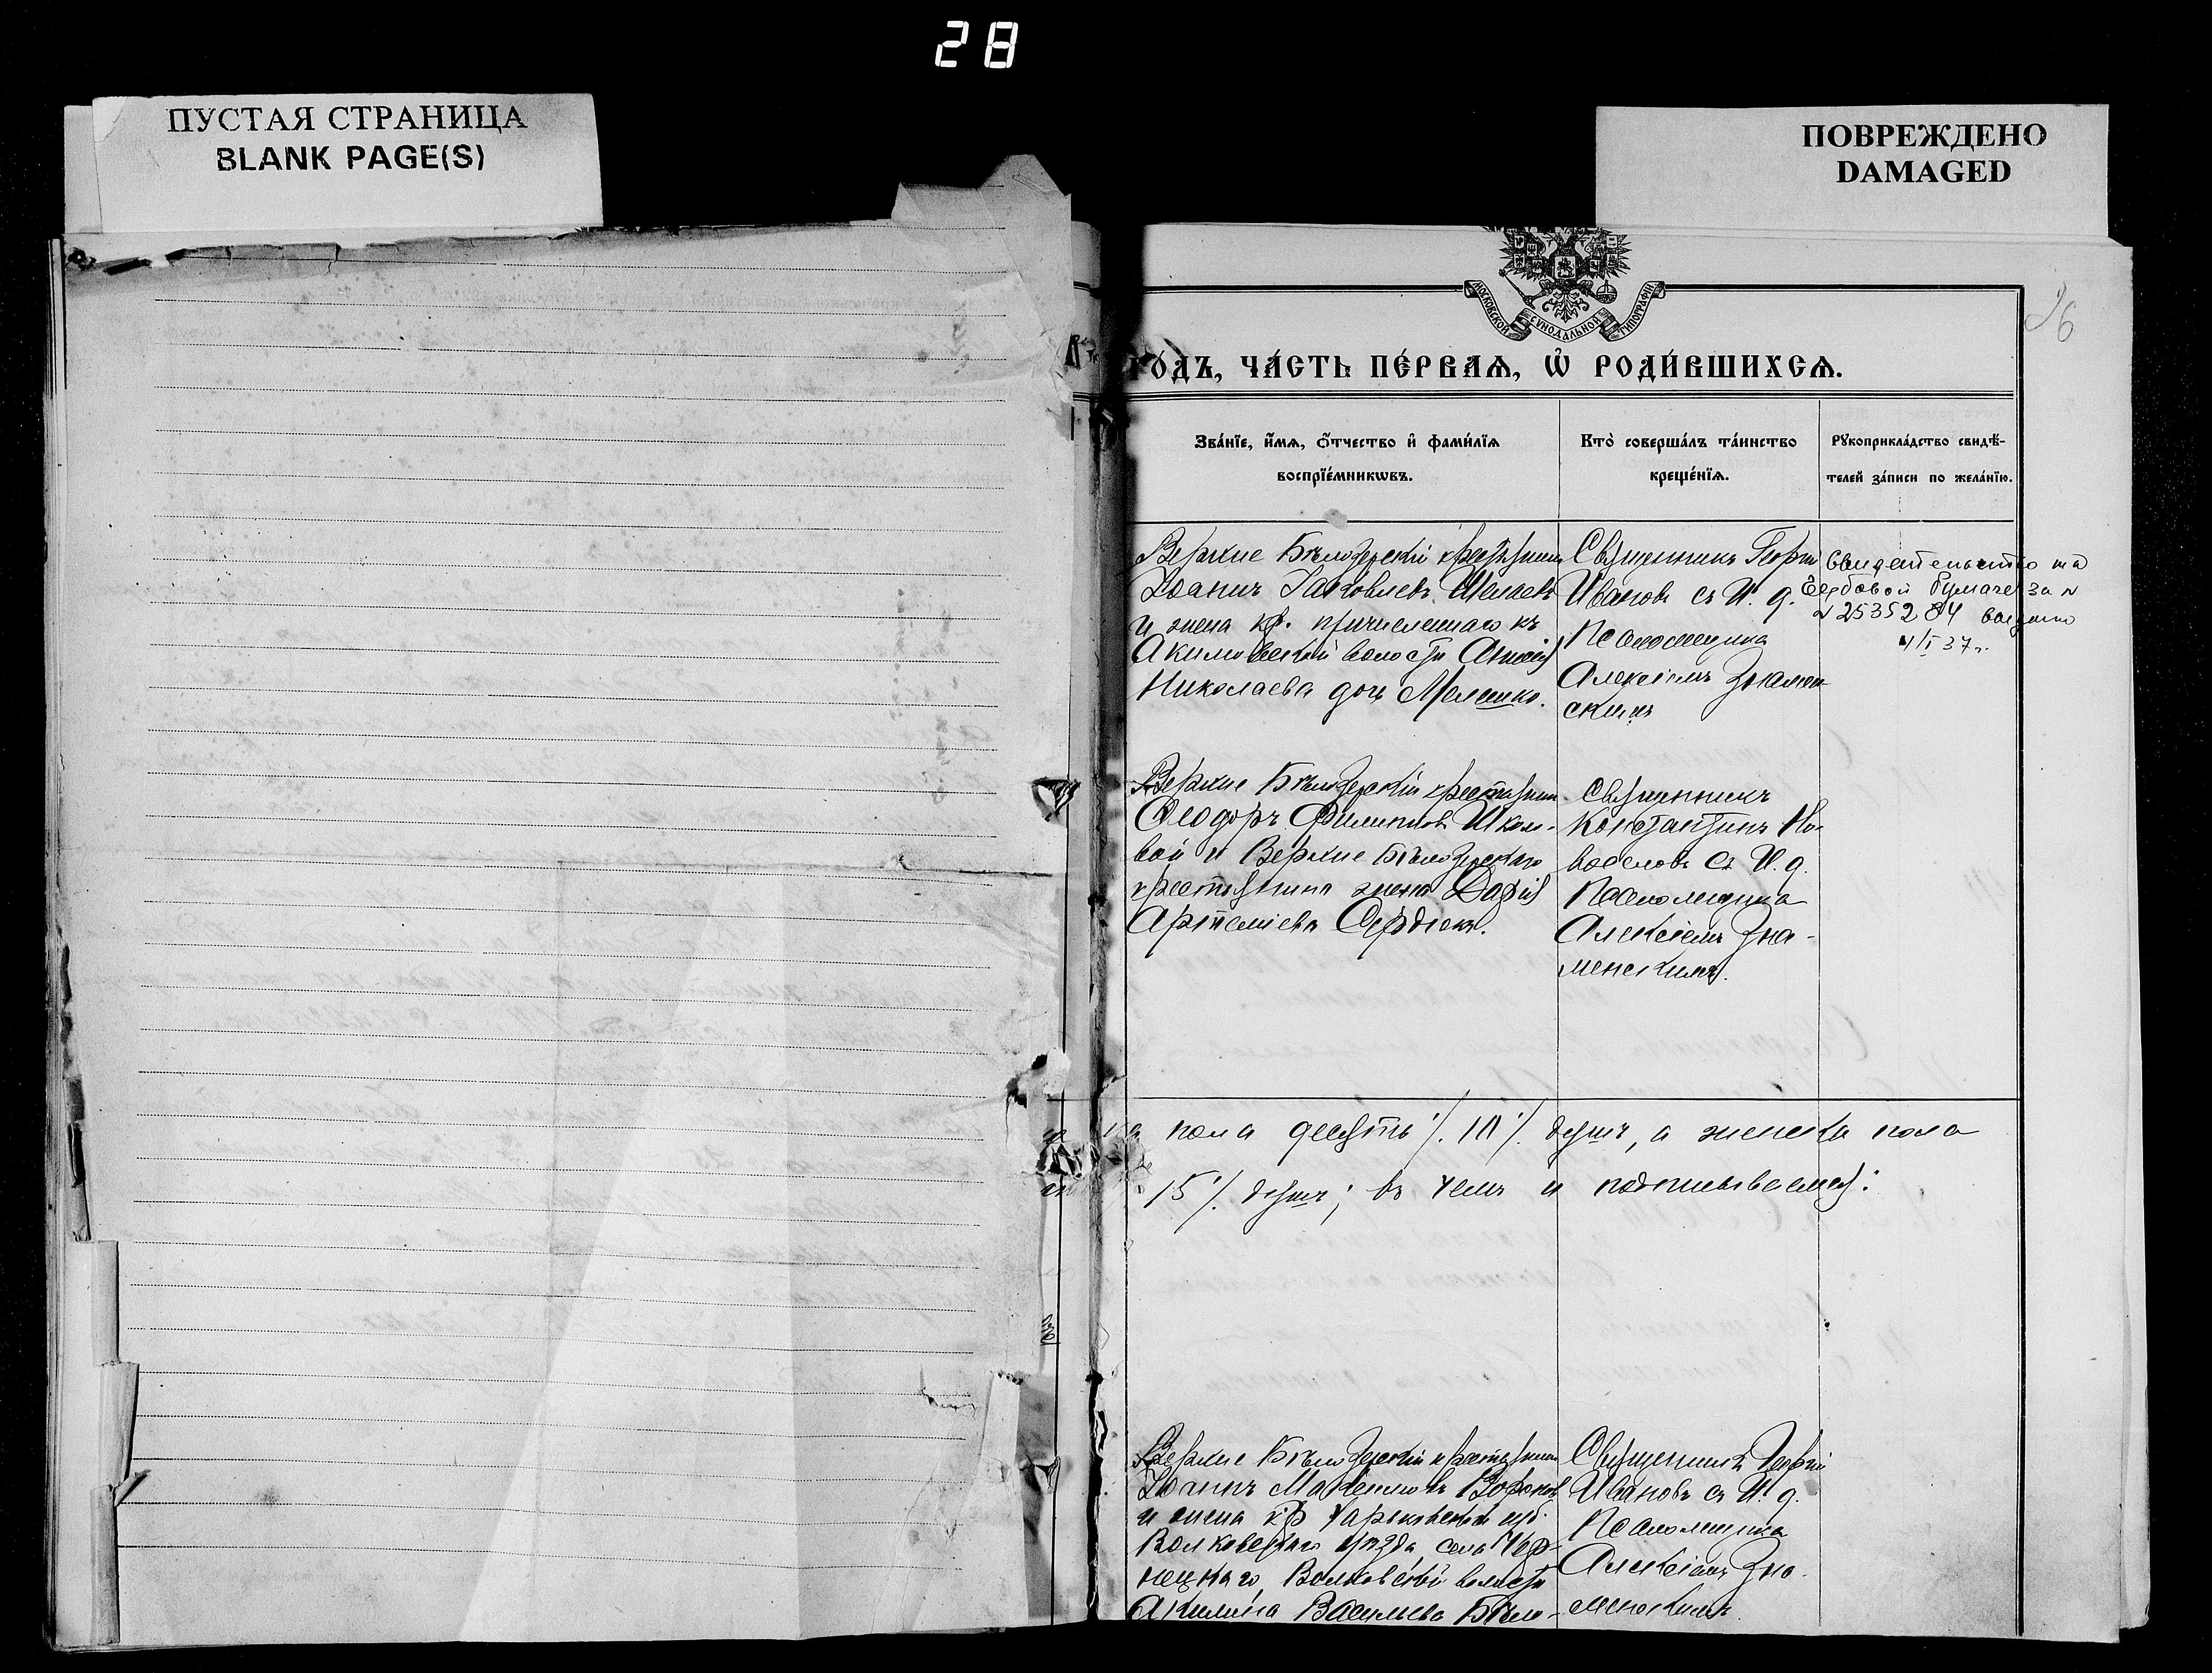 28
ПУСТАЯ СТРАНИЦА
BLANK PAGE(S)
ПОВРЕЖДЕНО
DAMAGED
МОСКОВСКОЙ СѴНОДАЛЬНОЙ ТИПОГРАФІИ
26
го́дъ, ча́сть пе́рваѧ, ѡ҆ роди́вшихсѧ.
Зва́нїе, и҆́мѧ, ѻ҆́тчество и҆ фами́лїѧ
воспрїе́мникѡвъ.
Кто̀ соверша́лъ та́инство
креще́нїѧ.
Рꙋкоприкла́дство свидѣ́-
телей за́писи по жела́нїю.
Верхне Бѣлозерскій крестьянинъ
Іоаннъ Іаковлевъ
и жена кр. причисленнаго къ
Акимовской волости Анисія
Николаева дочь Мелешко.
Священникъ Георгій
Ивановъ съ И. д.
Псаломщика
Алексіемъ Знамен
скимъ
Свидетельство на
гербовой бумаге за №
№ 2535284 выдано
4/I 37 г.
Верхне Бѣлозерскій крестьянинъ
Ѳеодоръ Филипповъ Школо-
вой и Верхне Бѣлозерскаго
крестьянина жена Дарія
Артеміева Сердюкъ.
Священникъ
Константинъ Но-
воселовъ съ И. д.
Псаломщика
Алексіемъ Зна-
менскимъ.
пола десять /. 10 /. душъ, а женска пола
15 /. душъ; въ чемъ и подписываемся:
Верхне Бѣлозерскій крестьянинъ
Іоаннъ
и жена кр Харьковской губ.
Волковскаго уѣзда села Чер-
нецкаго, Волковской волости
Акилина Васильева Бѣло-
Священникъ Георгій
Ивановъ съ И. д.
Псаломщика
Алексіемъ Зна-
менскимъ.